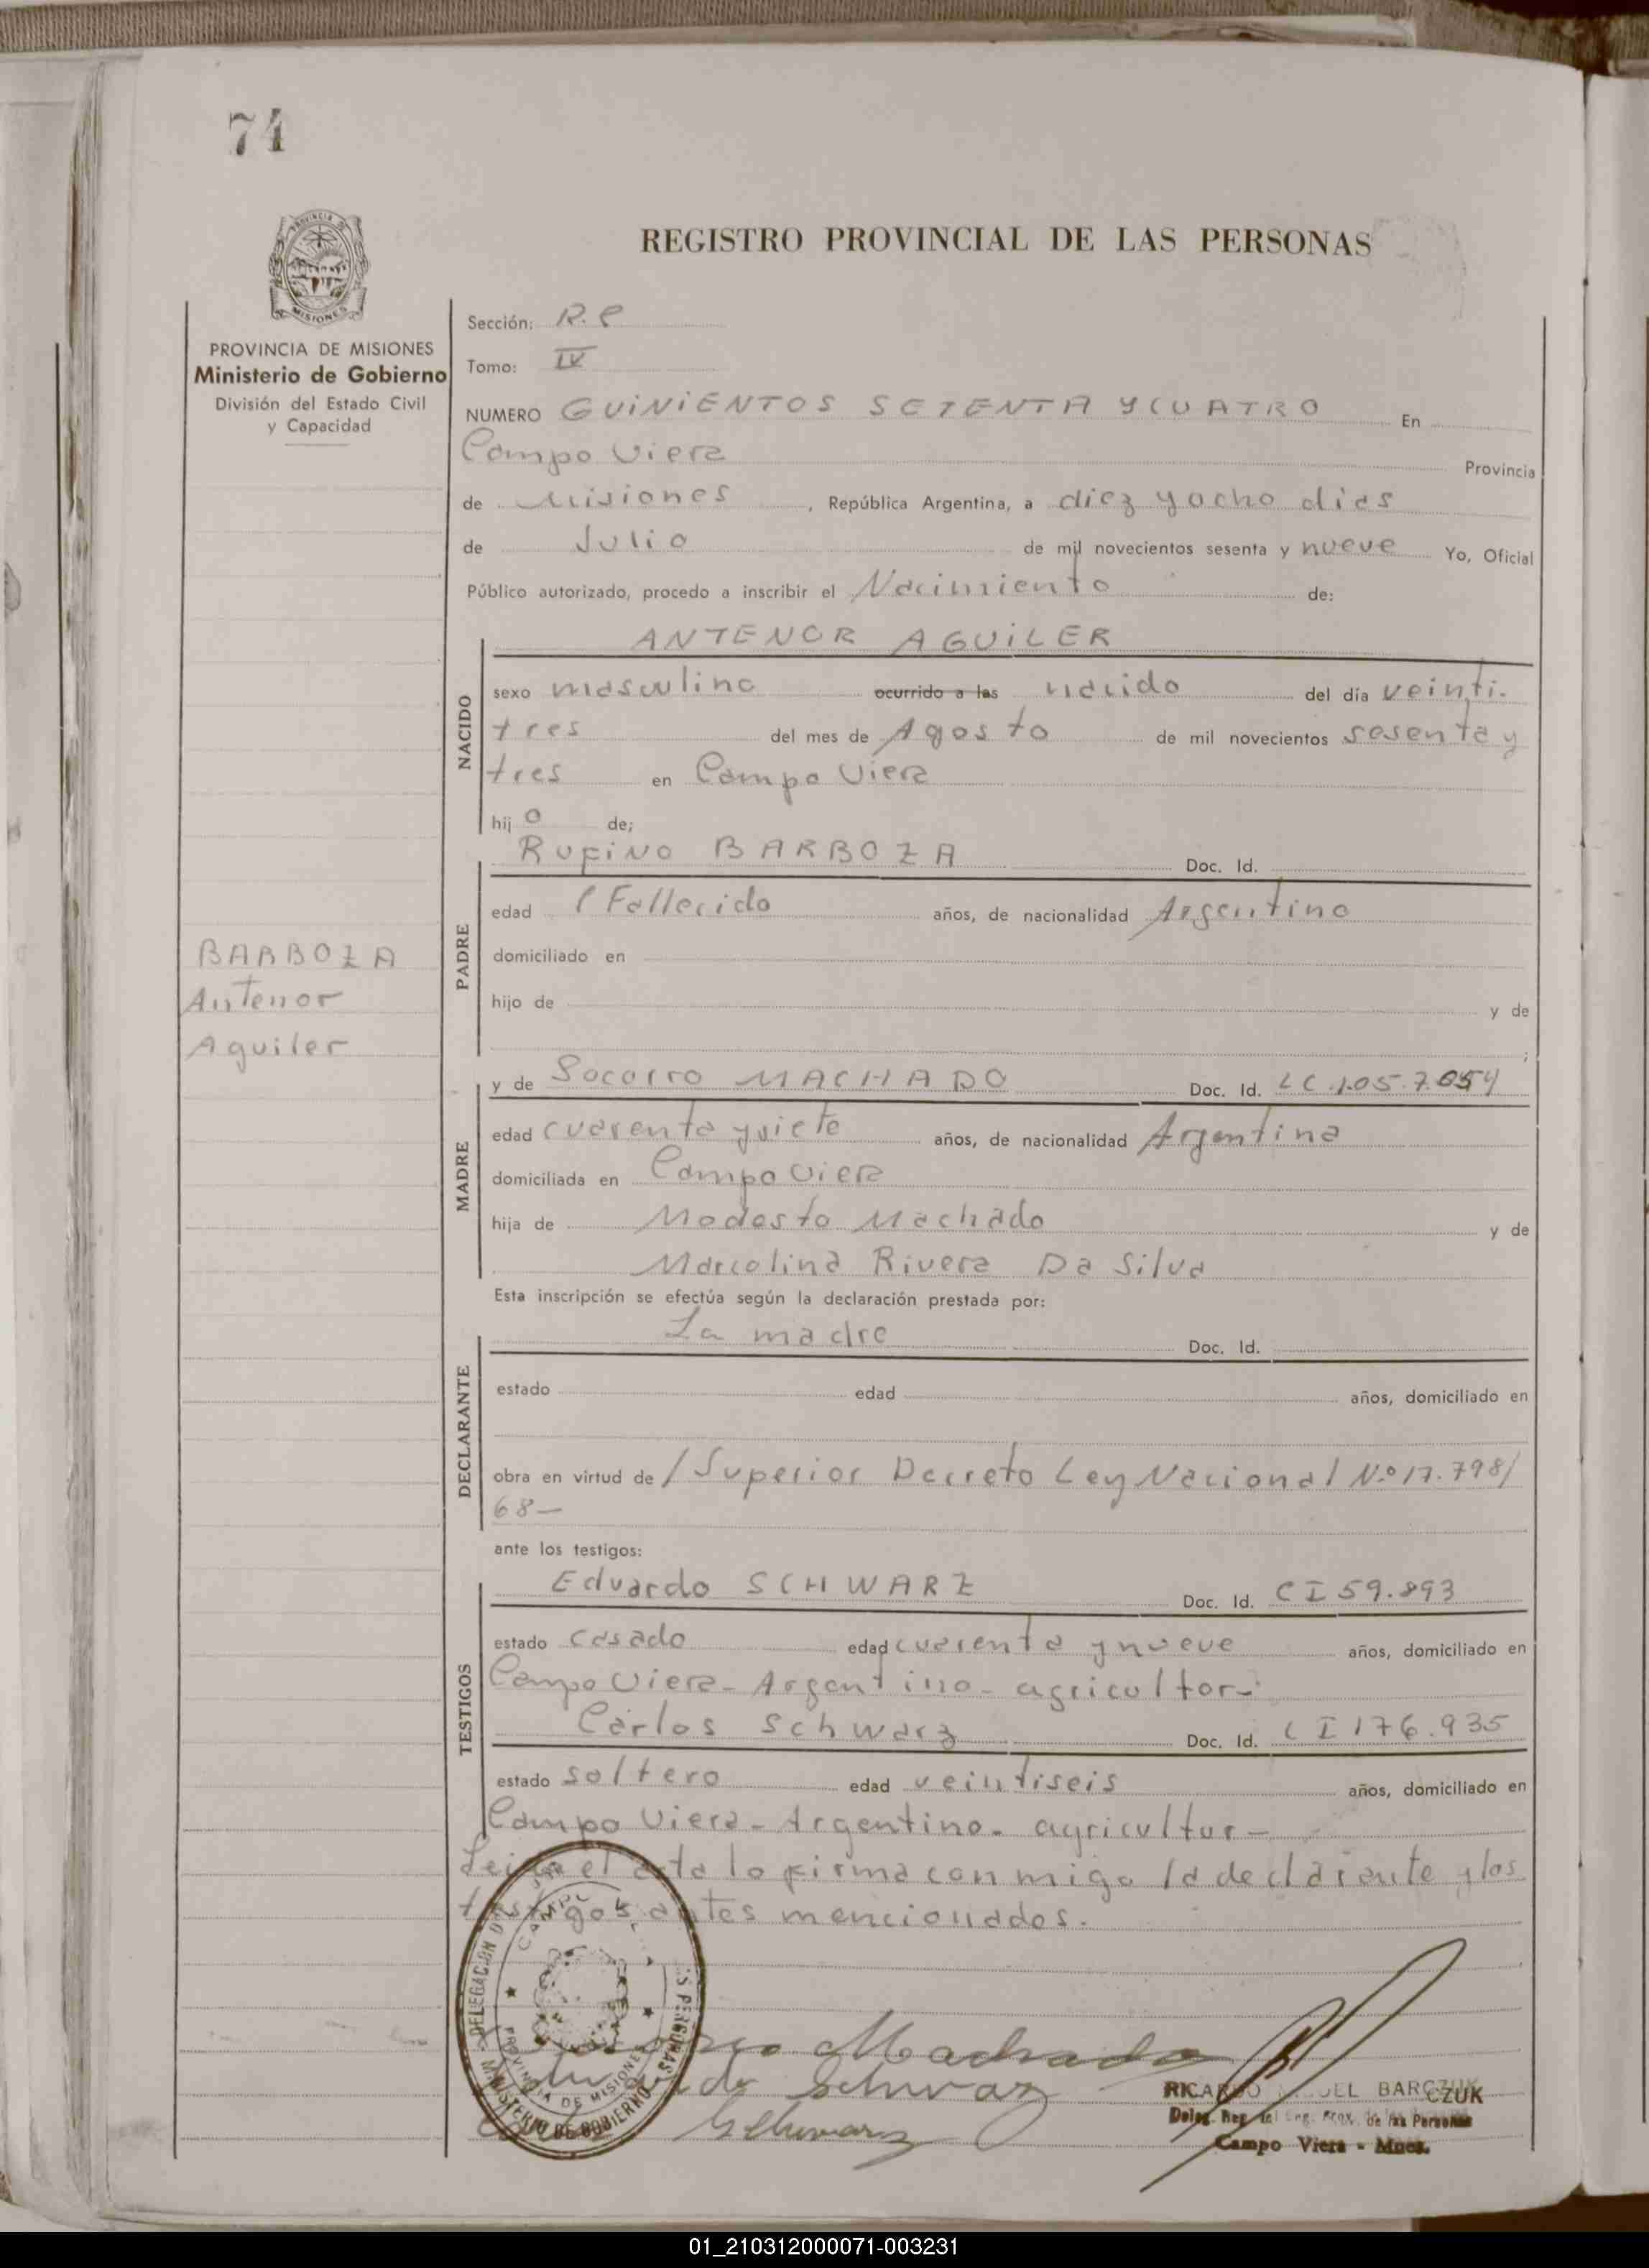 74
REGISTRO PROVINCIAL DE LAS PERSONAS
PROVINCIA
MISIONES
PROVINCIA DE MISIONES
Ministerio de Gobierno
División del Estado Civil
y Capacidad
Sección: R.C
Tomo: IV
NUMERO GUINIENTOS SETENTA Y CUATRO En
Campo Viera Provincia
de Misiones, República Argentina, a diez y ocho dias
de Julio de mil novecientos sesenta y nueve Yo, Oficial
Público autorizado, procedo a inscribir el Nacimiento de:
ANTENOR AGUILER
NACIDO
sexo masculino ocurrido a las nacido del día veinti-
tres del mes de Agosto de mil novecientos sesenta y
tres en Campo Viera
hij o de;
Rufino BARBOZA Doc. Id.
PADRE
edad (Fallecido años, de nacionalidad Argentino
domiciliado en
hijo de y de
;
BARBOZA
Antenor
Aguiler
y de Socorro MACHADO Doc. Id. LC 1.05.7.054
MADRE
edad cuarenta y siete años, de nacionalidad Argentina
domiciliada en Campo Viera
hija de Modesto Machado y de
Marcolina Rivera Da Silva
Esta inscripción se efectúa según la declaración prestada por:
La madre Doc. Id.
DECLARANTE
estado edad años, domiciliado en
obra en virtud de /Superior Decreto Ley Nacional N.º 17.798/
68-
ante los testigos:
Eduardo SCHWARZ Doc. Id. CI 59.893
TESTIGOS
estado casado edad cuarenta y nueve años, domiciliado en
Campo Viera- Argentino- agricultor-
Carlos Schwarz Doc. Id. CI 176.935
estado soltero edad veintiseis años, domiciliado en
Campo Viera- Argentino- agricultor-
el acta lo firma con migo la declarante y los
testigos antes mencionados.
DELEGACION PERSONAS
CAMPO
PROVINCIA DE MISIONES
MINISTERIO DE GOBIERNO
Machado
Schwarz
Schwarz
RICARDO BARCZUK
de las Personas
Campo Viera - Mnes.
01_210312000071-003231